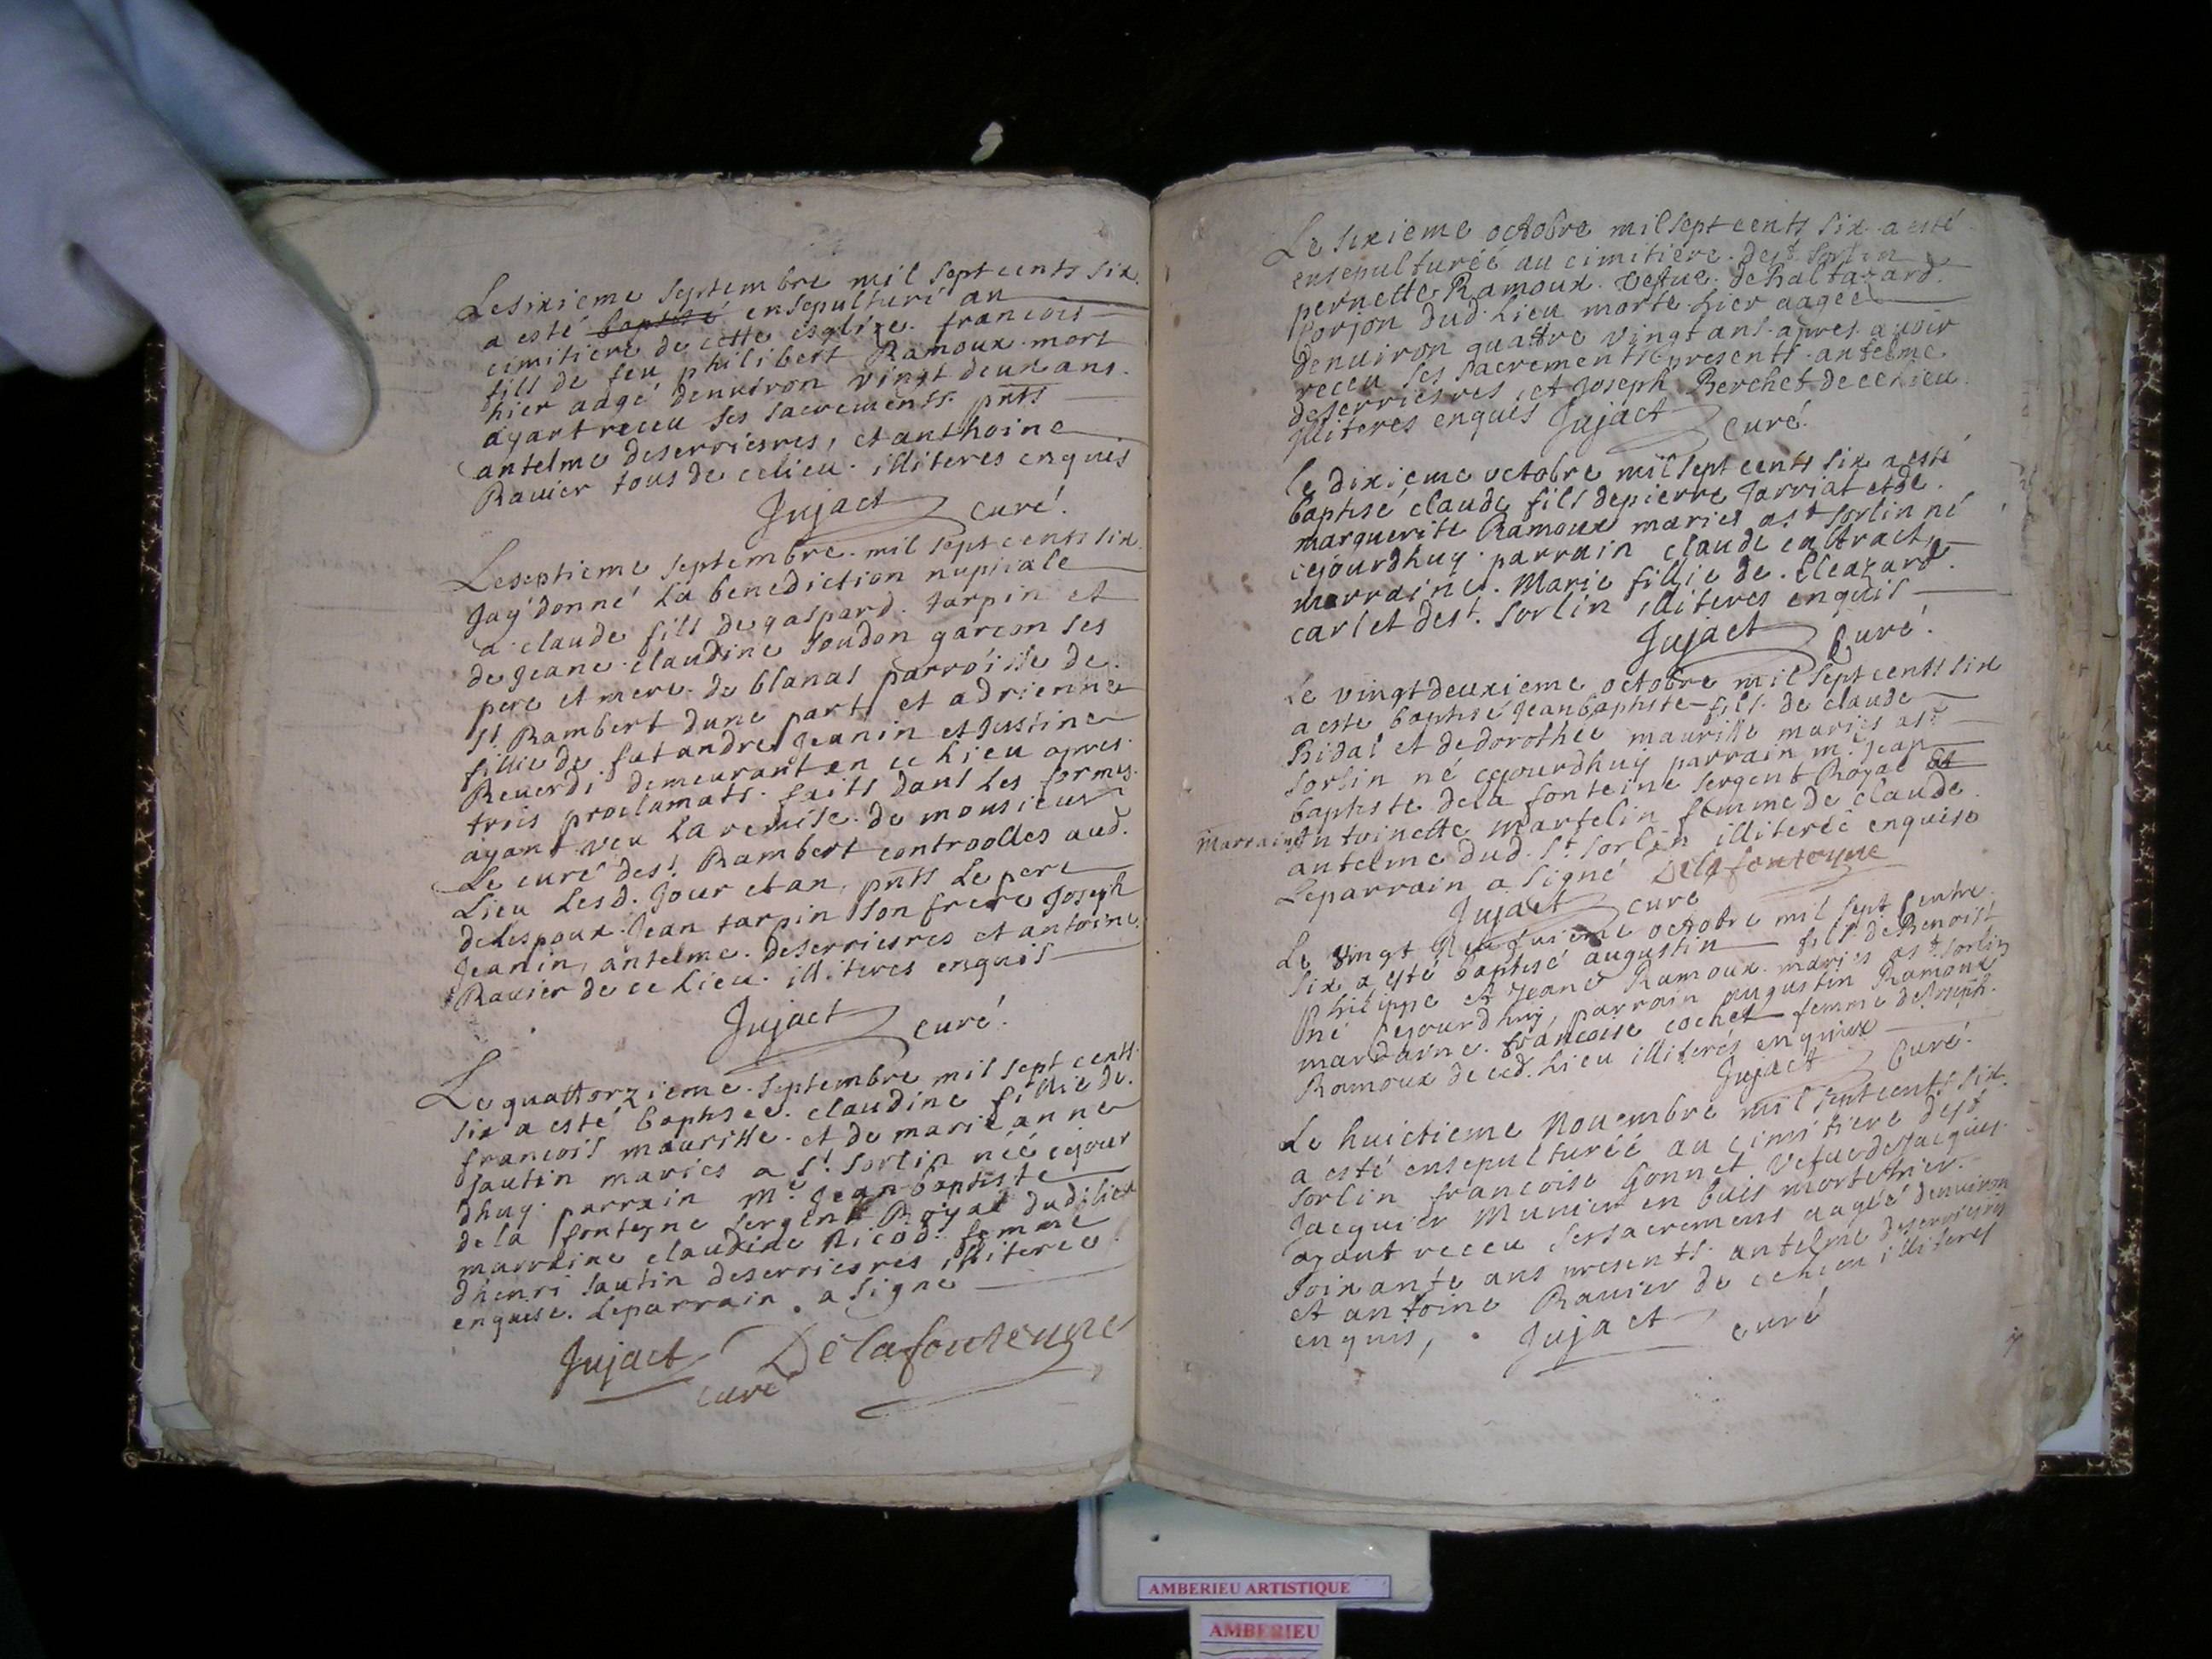 Le sixieme septembre mil sept cents six
a esté baptisé ensepulturé au
cimitiere de cette esglize. francois
fils de feu philibert Ramoux mort
hier aagé denviron vingt deux ans.
ayant receu ses sacrements. pnts
antelme deserriesres, et anthoine
Ravier tous de ce lieu. illiteres enquis
Jujact curé.
Le septieme septembre. mil sept cents six
Jay donné La benediction nuptiale
a claude fils de gaspard. tarpin et
de Jeane. claudine soudon garcon ses
pere et mere. de blanas parroisse de
st. Rambert dune part et adrienne
fillie de fut andre Jeanin et Justine
Reverdi demeurant en ce Lieu apres
trois proclamats. faits dans les formes.
ayant veu La remise. de monsieur
Le curé de st. Rambert controolles aud.
Lieu Lesd. Jour et an, pnts Le pere
de Lespoux. Jean tarpin son frere Joseph
Jeanin, antelme. deserriesres et antoine
Ravier de ce Lieu. illiteres enquis
Jujact curé.
Le quattorzieme. septembre mil sept cents
six a esté baptisee. claudine fillie de.
francois maurisse. et de marie anne
sautin maries a st. sorlin née cejour
dhuy. parrain me. Jean baptiste
de la fonteyne sergent Royal dud. lieu
marraine claudine Nicod. femme
dhenri sautin deserriesres illiteree
enquise. Le parrain. a signe
Jujact Delafonteyne
curé
Le sixieme octobre mil sept cents six a esté
ensepulturéé au cimitiere. de st sorlin
pernette Ramoux. vefue. de Baltazard.
porjon dud. Lieu morte hier aagée
denuiron quattre vingt ans. apres avoir
receu ses sacrements presents. antelme
deserriesres et Joseph Berchet de ce Lieu.
illiteres enquis Jujact curé.
le dixieme octobre mil sept cents six a esté
baptisé claude fils de pierre Jarriat et de.
marguerite Ramoux maries a st sorlin né
cejourdhuy. parrain claude
marraine. Marie fillie de. Eleazard.
carlet de st. sorlin illiteres enquis
Jujact Curé.
Le vingt deuxieme octobre mil sept cents six
a este baptisé Jean baptiste fils. de claude
Bidal et de dorothée maurisse maries a st.
sorlin né cejourdhuy parrain me. Jean
baptiste de la fonteine sergent Royal et
Marraine Antoinette martelin femme de claude.
antelme dud. st. sorlin illiteréé enquise
Le parrain a signé Delafonteyne
Jujact curé
Le vingt neufuieme octobre mil sept cents
six a esté baptisé augustin fils de Benoist
philippe et Jeane Ramoux. maries a st. sorlin
né Cejourdhuy, parrain augustin Ramoux
marraine. francoise cochet femme de Joseph.
Ramoux de ced. Lieu illiterés enquis
Jujact Curé.
Le huictieme Novembre mil sept cents six.
a esté ensepulturéé au cimitiere de st
sorlin francoise Gonnet. Vefue de Jacques.
Jacquier Munier en buis morte hier.
ayant receu ses sacremens aagéé denviron
soixante ans presents. antelme deserriesres
et antoine Ravier de ce Lieu illiteres
enquis, Jujact curé
AMBERIEU ARTISTIQUE
AMBERIEU